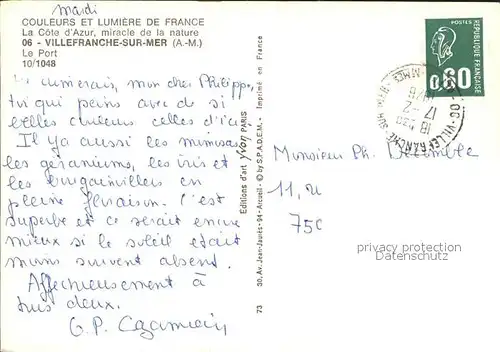 mardi
COULEURS ET LUMIÈRE DE FRANCE
La Côte d'Azur, miracle de la nature
06 - VILLEFRANCHE-SUR-MER (A.-M.)
Le Port
10/1048
aimerais, mon cher Philippe,
toi qui peins avec de si
belles couleurs celles d'ici
Il y a aussi les mimosas
les géraniums, les iris et
les bougainvilliers en
pleine floraison. C'est
superbe et ce serait encore
mieux si le soleil était
moins souvent absent.
Affectueusement à
tous deux.
G. P.
Editions d'art Yvon PARIS
30, Av. Jean-Jaurès - 94 - Arcueil - © by S.P.A.D.E.M. - Imprimé en France
73
POSTES
0,60
REPUBLIQUE FRANÇAISE
VILLEFRANCHE-SUR-MER
18 H
17 - 2
Monsieur Ph.
11, u
750
privacy protection
Datenschutz